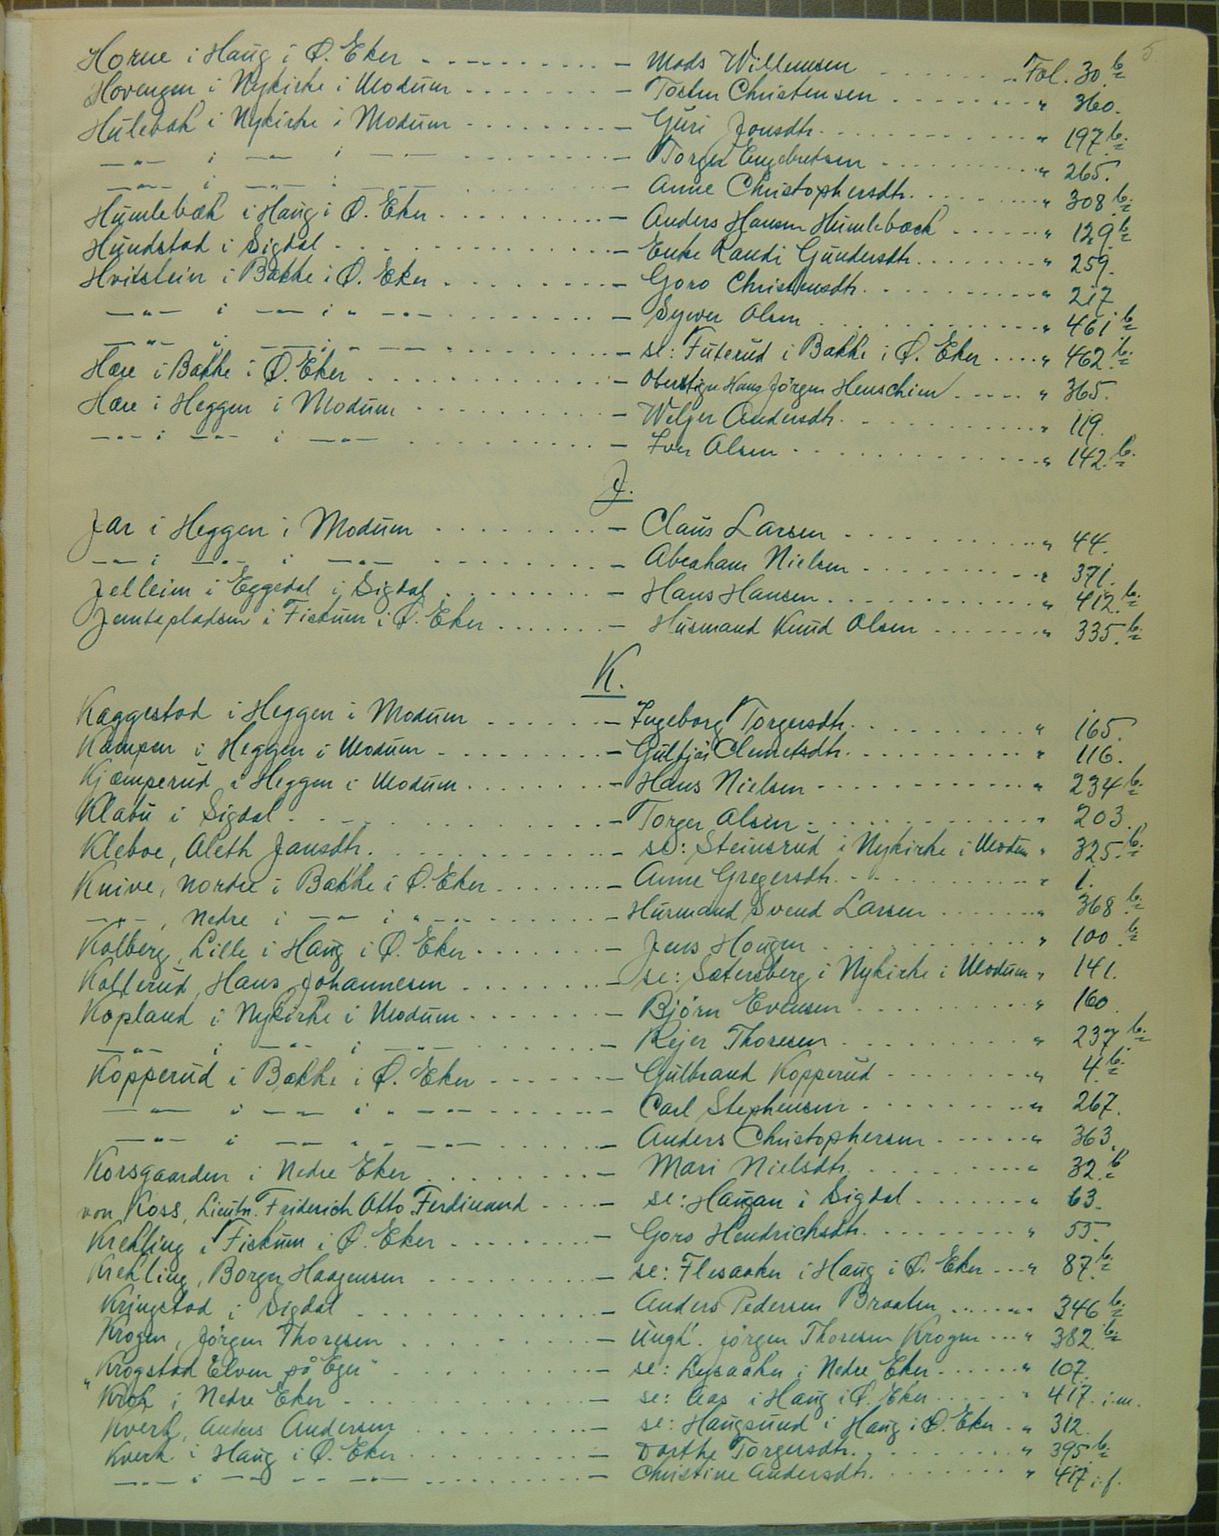 5
Horne i Haug i Ø. Eker - Mads Willumsen Fol. 30 b.
Hovengen i Nykirke i Modum - Tosten Christensen " 360.
Hulebak i Nykirke i Modum - Guri Jonsdtr. " 197 b.
—"— i —"— i —"— - Torger Engebretsen " 265.
—"— i —"— i —"— - Anne Christophersdtr. " 308 b.
Humlebæk i Haug i Ø. Eker - Anders Hansen Humlebæck " 129 b.
Hundstad i Sigdal - Enke Randi Gundersdtr. " 259.
Hvitstein i Bakke i Ø. Eker - Goro Christensdtr. " 217
—"— i —"— i " —"— - Syver Olsen " 461 b.
—"— i —"— i " —"— - se: Futerud i Bakke i Ø. Eker " 462 b.
Hære i Bakke i Ø. Eker - Oberstlgn Hans Jörgen Henschien " 365.
Hære i Heggen i Modum - Welger Andersdtr. " 119.
—"— i —"— i —"— - Iver Olsen " 142. b.
J.
Jar i Heggen i Modum - Claus Larsen " 44.
—"— i —"— i —"— - Abraham Nielsen " 371.
Jelleim i Eggedal i Sigdal - Hans Hansen " 412. b.
Jemtepladsen i Fiskum i Ø. Eker - Husmand Knud Olsen " 335. b.
K.
Kaggestad i Heggen i Modum - Ingeborg Torgersdtr. " 165.
Kampen i Heggen i Modum - Gulbjör Clemetsdtr. " 116.
Kjæmperud i Heggen i Modum - Hans Nielsen " 234 b.
Klabu i Sigdal - Torger Olsen " 203.
Kleboe, Aleth Jansdtr. - se: Steinsrud i Nykirke i Modum " 325. b.
Knive, nordre i Bakke i Ø. Eker - Anne Gregersdtr. " 1.
—"—, nedre i —"— i " —"— - Husmand Svend Larsen " 368 b.
Kolberg, Lille i Haug i Ø. Eker - Jens Hougen " 100 b.
Kollerud, Hans Johannesen - se: Sætersberg i Nykirke i Modum " 141.
Kopland i Nykirke i Modum - Bjørn Evensen " 160
—"— i —"— i —"— - Rejer Thoresen " 237 b.
Kopperud i Bakke i Ø. Eker - Gulbrand Kopperud " 4. b.
—"— i —"— i " —"— - Carl Stephensen " 267.
—"— i —"— " " —"— - Anders Christophersen " 363.
Korsgaarden i Nedre Eker - Mari Nielsdtr. " 32. b
von Koss, Lieutn. Friderich Otto Ferdinand - se: Haugan i Sigdal " 63.
Krekling i Fiskum i Ø. Eker - Goro Hendrichsdtr. " 55.
Krekling, Borger Haagensen - se: Flesaaker i Haug i Ø. Eker " 87. b.
Kringstad i Sigdal - Anders Pedersen Braaten " 346 b.
Krogen, Jörgen Thoresen - Ungk. Jörgen Thoresen Krogen " 382. b.
"Krogstad Elven på Eger" - se: Lysaaker i Nedre Eker " 107.
Krok i Nedre Eker - se: Aas i Haug i Ø. Eker " 417. i.m.
Kverk, Anders Andersen - se: Haugsund i Haug i Ø. Eker " 312.
Kverk i Haug i Ø. Eker - Dorthe Torgersdtr. " 395 b.
—"— i —"— " " —"— - Christine Andersdtr. " 417 i.f.